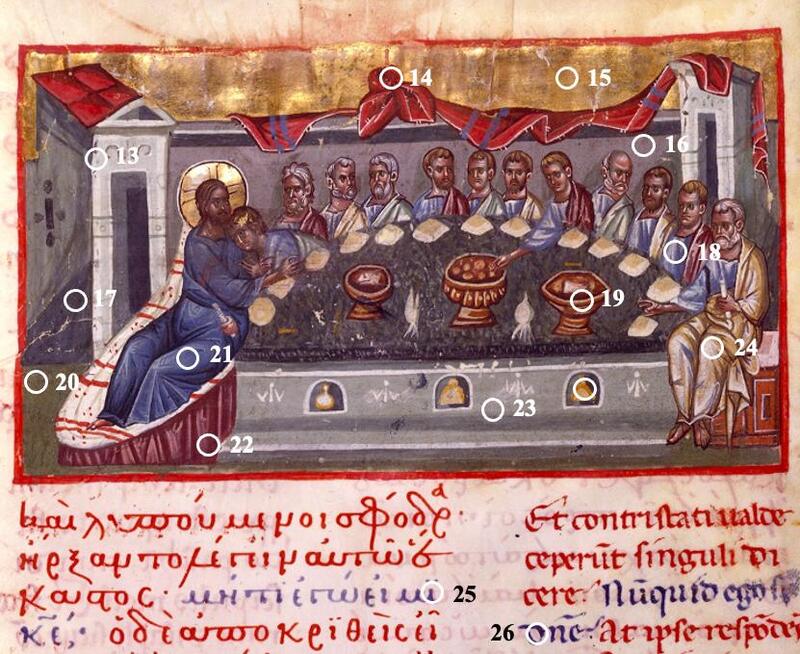 14
15
13
16
18
17
19
21
24
20
23
22
καὶ λυπούμενοι σφόδρα·
ἤρξαντο λέγειν αὐτῶ ἕ
καστος· μήτι ἐγώ εἰμι 25
κε̅· ὁ δὲ ἀποκριθεὶς εἶ
Et contristati ualde
ceperūt singuli di
cere· Nūquid ego
26 dn̄e· At ipse